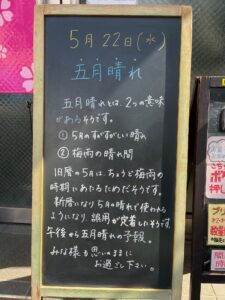 5月22日(水)
五月晴れ
五月晴れとは、2つの意味
があるそうです。
①5月のすがすがしい晴れ
②梅雨の晴れ間
旧暦の5月は、ちょうど梅雨の
時期にあたるためだそうです。
新暦になり5月の晴れで使われる
ようになり、誤用が定着したそうです。
午後から五月晴れの予報。
みな様も思いのままに
お過ごし下さい。